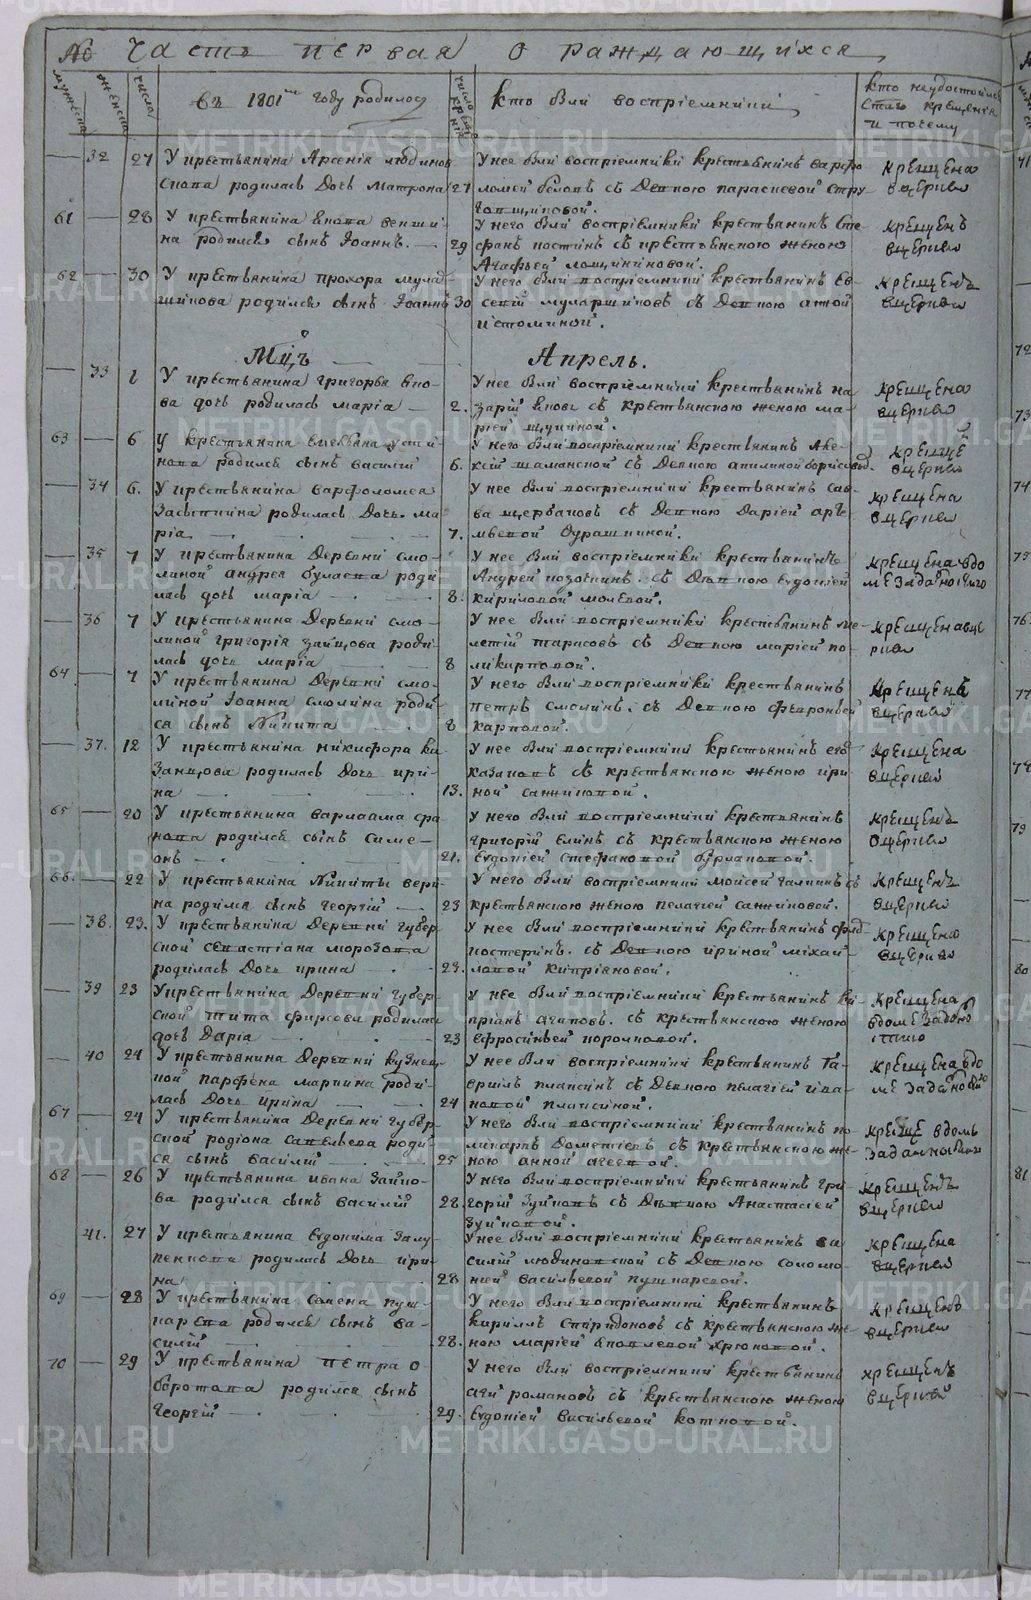 № Часть первая о раждающихся
мужеска
женска
числа
въ 1801м году родилос
число креще нія
кто были воспріемники
кто неудостоился
стаго крещенія
и почему
32 27 У крестьянина Арсенія людинов
скова родилась Дочь матрона 27
У нее были воспріемники крестьянинъ варфо
ломей беловъ съ Девкою парасковой стру
говщиковой.
крещена
вцеркви
61 28 У крестьянина
на родился сынъ Іоаннъ. 29
У него были воспріемники крестьянинъ Сте
фанъ костинъ съ крестьянскою женою
Агафьей
крещенъ
вцеркви
62 30 У крестьянина прохора мулар
шикова родился сынъ Іоаннъ 30
У него были воспріемники крестьянинъ Ев
севій муларшиковъ съ Девкою анной
истоминой.
крещенъ
вцеркви
Мцъ Апрель.
33 1 У крестьянина григорья
ва дочь родилась марія 2.
У нее были воспріемники крестьянинъ на
зарій съ крестьянскою женою ма
ріей щукиной.
крещена
вцеркви
63 6 У крестьянина усти
нова родился сынъ василій 6.
У него были воспріемники крестьянинъ Але
ксій шаманской съ Девкою акилиной борисовой.
креще
вцеркви
34 6. У крестьянина варфоломея
Засыпкина родилась Дочь ма
рія 7.
У нее были воспріемники крестьянинъ сав
ва щербаковъ съ Девкою Даріей арте
мьевой бурашкиной.
крещена
вцеркви
35 7 У крестьянина Деревни смо
линой андрея булаева роди
лась дочь марія 8.
У нее были воспріемники крестьянинъ
Андрей казаткинъ съ Девкою евдокіей
кириловой молевой.
крещена вдо
ме задавностію
36 7 У крестьянина Деревни смо
линой григорія зайцова роди
лась дочь марія 8
У нее были воспріемники крестьянинъ ме
летій тарасовъ съ Девкою маріей по
ликарповой.
крещена вце
ркви
64 7 У крестьянина Деревни смо
линой Іоанна смолина роди
ся сынъ Никита 8
У него были воспріемники крестьянинъ
петръ смолинъ съ Девкою февроньей
карповой.
крещенъ
вцеркви
37. 12 У крестьянина никифора ка
занцова родилась Дочь ири
на 13.
У нее были воспріемники крестьянинъ егоръ
казаковъ съ крестьянскою женою ири
ной сажиновой.
крещена
вцеркви
65 20 У крестьянина варлаама
нова родился сынъ Симе
онъ 21.
У него были воспріемники крестьянинъ
григорій елинъ съ крестьянскою женою
евдокіей стефановой бурлаковой.
крещенъ
вцеркви
66. 22 У крестьянина Никиты вери
на родился сынъ георгій 23
У него были воспріемники моисей галкинъ съ
крестьянскою женою пелагіей сажиновой.
крещенъ
вцеркви
38. 23. У крестьянина Деревни губер
ской севастіана морозова
родилась Дочь ирина 23.
У нее были воспріемники крестьянинъ
костеринъ съ Девкою ириной михай
ловой кипріяновой.
крещена
вцеркви
39 23 У крестьянина Деревни губер
ской тита фирсова родилась
дочь Дарія 23
У нее были воспріемники крестьянинъ ки
пріянъ агаповъ съ крестьянскою женою
ефросиньей
крещена
вдоме задавно
стію
40 24 У крестьянина Деревни кузнец
кой парфена маркина роди
лась Дочь ирина 24
У нее были воспріемники крестьянинъ га
врилъ плаксинъ съ Девкою пелагіей ива
новой плаксиной.
крещена вдо
ме задавностію
67 24 У крестьянина Деревни губер
ской родіона савельева роди
ся сынъ василій 25
У него были воспріемники крестьянинъ по
ликарпъ Дометіевъ съ крестьянскою же
ною анной агеевой.
креще вдомъ
задавностію
68 26 У крестьянина ивана Зайко
ва родился сынъ василій 28.
У него были воспріемники крестьянинъ гри
горій Зуйковъ съ Девкою Анастасіей
Зуйковой.
крещенъ
вцеркви
41. 27 У крестьянина Евдокима Залу
пенкова родилась Дочь ири
на 28
У нее были воспріемники крестьянинъ ва
силій людиновской съ Девкою соломо
ніей васильевой пушкаревой.
крещена
вцеркви
69 28 У крестьянина Семена пуш
карева родился сынъ ва
силій 28.
У него были воспріемники крестьянинъ
кириллъ спиридоновъ съ крестьянскою же
ною маріей яковлевой хрюковой.
крещенъ
вцеркви
70 29 У крестьянина петра о
боротова родился сынъ
георгій 29.
У него были воспріемники крестьянинъ
агей романовъ съ крестьянскою женою
евдокіей васильевой котковой.
крещенъ
вцеркви